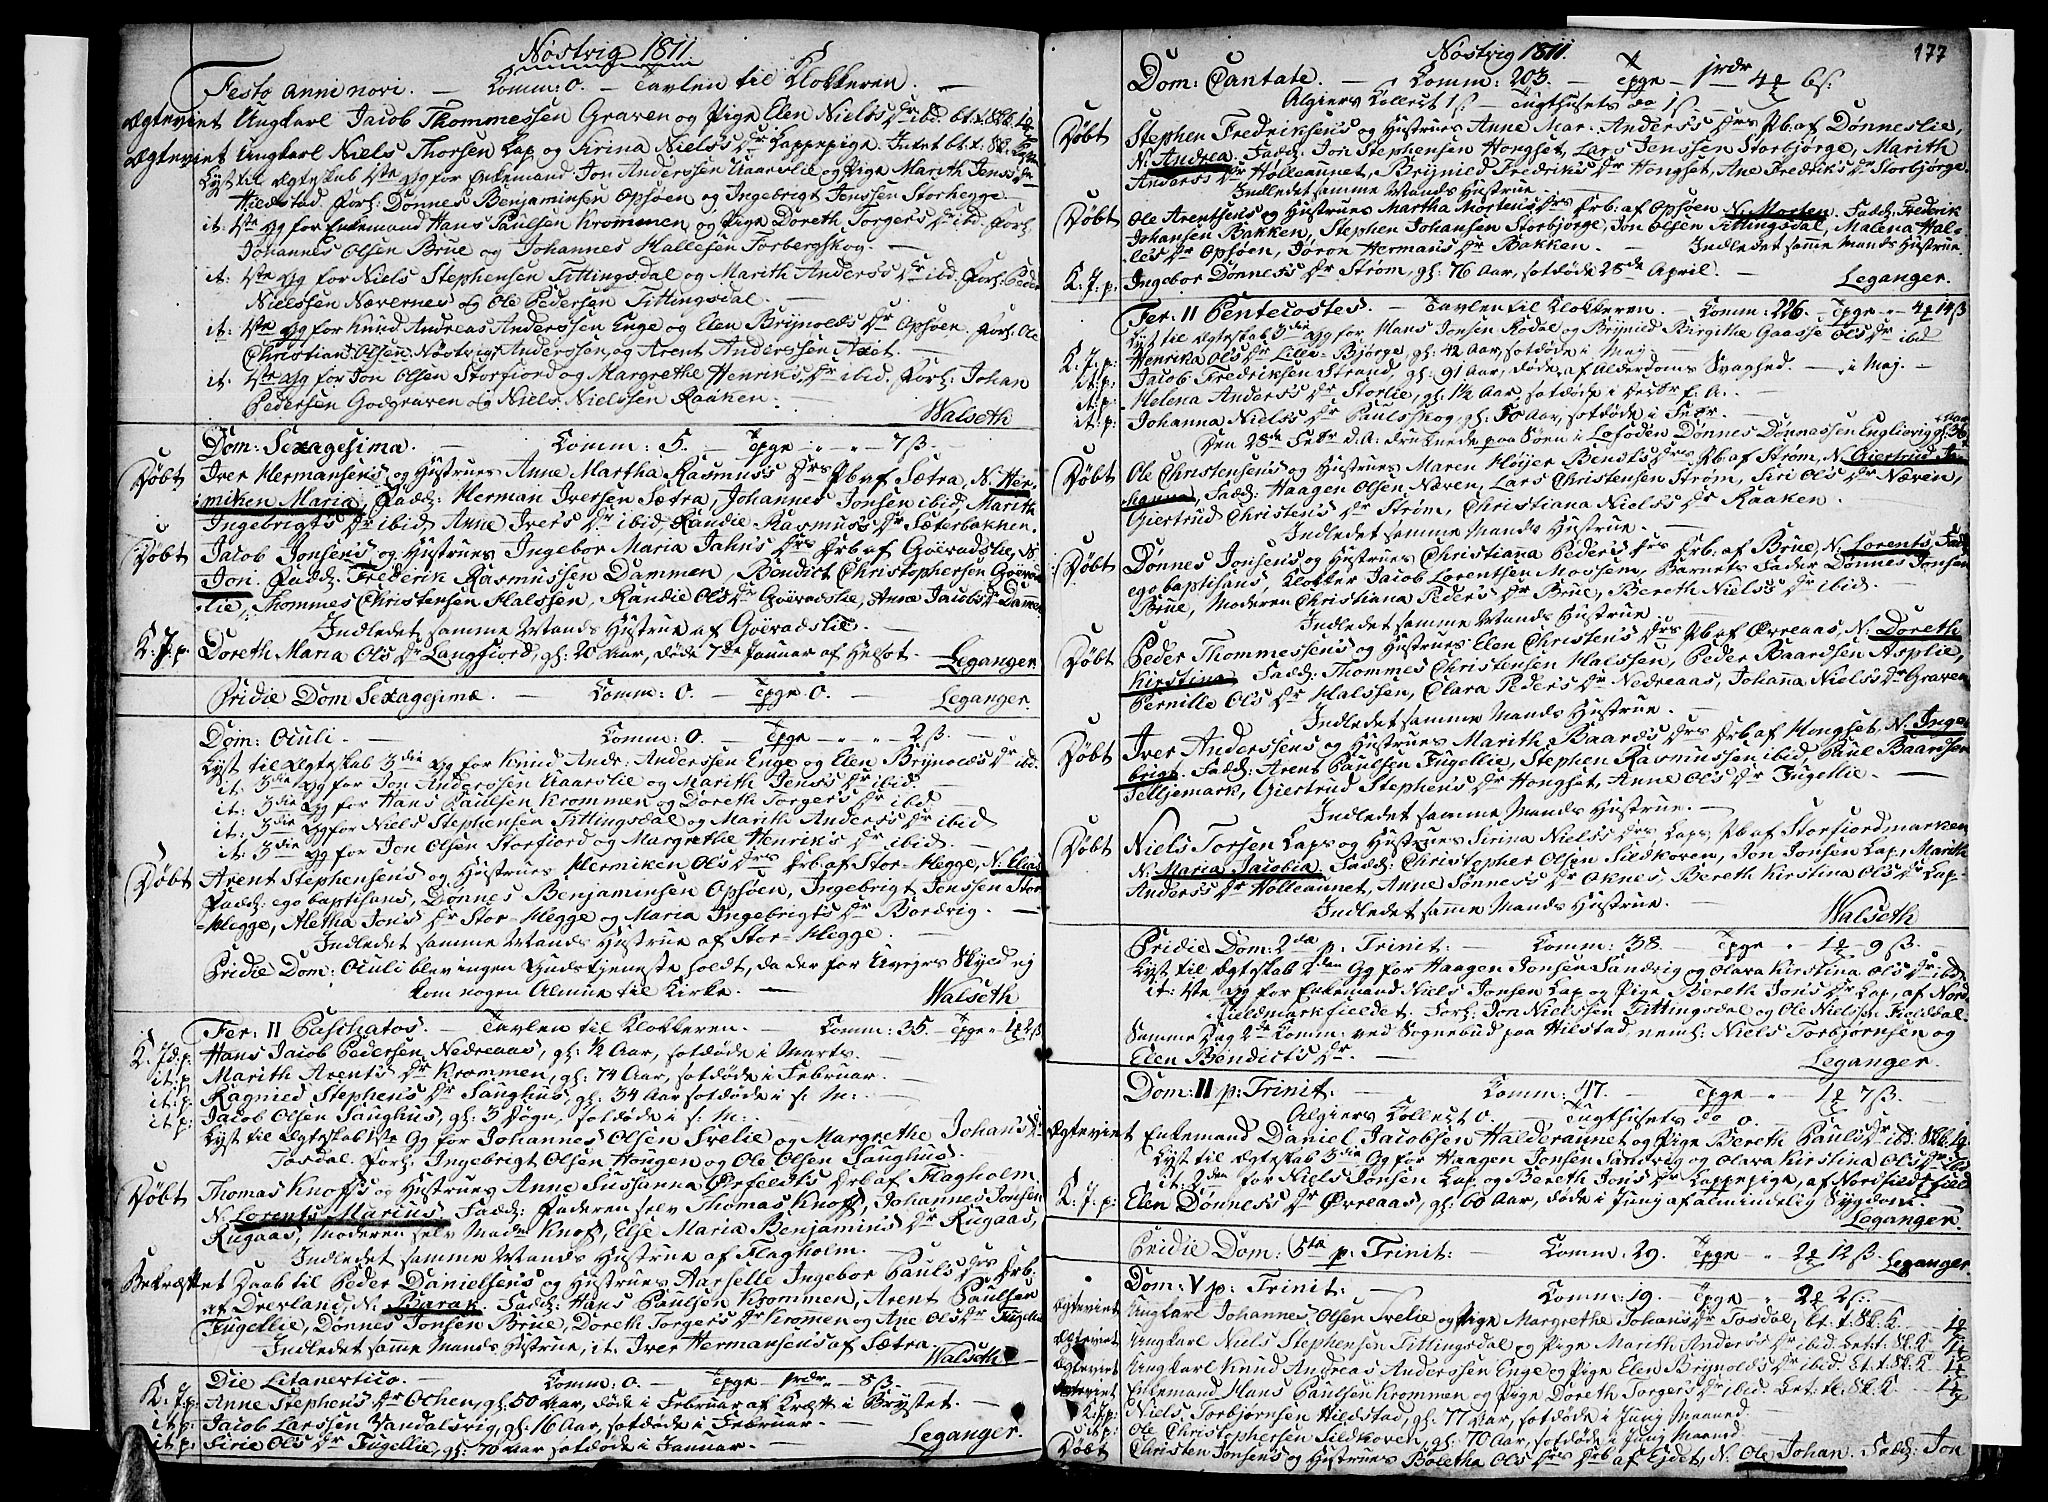 Nöstvig 1811
Festo anni novi. — Comm: 0. — Tavlen til Klokkeren. —
Ægteviet Ungkarl Jacob Thommessen Graven og Pige Elen Nielsdr ibd bt.
Ægteviet Ungkarl Niels Thorsen Lap og Sirina Nielsdr Lappepige. Intet bt.
Lyst til Ægteskab 1ste Gg for Enkemand Jon Anderssen Aaarslie og Pige Marith Jensdr
Hildstad. Forl: Dønnes Benjaminsen Opsøen og Ingebrigt Jenssen Storhegge.
it: 1ste Gg for Enkemand Hans Paulsen Krommen og Pige Doreth Torgersdr ibid. Forl:
Johannes Olsen Brue og Johannes Hallesen Torbergskog. —
it: 1ste Gg for Niels Stephensen Tittingsdal og Marith Andersdr ibid. Forl: Peder
Nielssen Nævernes og Ole Pedersen Tittingsdal. —
it: 1ste Gg for Knud Andreas Anderssen Enge og Elen Brynoldsdr Opsøen. Forl: Ole
Christian Olsen Nöstvig og Arent Anderssen
it: 1ste Gg for Jon Olsen Storfiord og Margrethe Henriksdr ibid. Forl: Johan
Pedersen Godgraven og Niels Nielssen Raaken. — Walseth
Dom: Sexagesima. — Comm: 5. — Tpge „ „ 7 ß. —
Døbt Iver Hermansens og Hustrues Anne Martha Rasmusdrs Pb af Sætra, N. Her-
miken Maria. Fadd: Herman Iversen Sætra, Johannes Jonsen ibid, Marith
Ingebrigtsdr ibid, Anne Iversdr ibid, Randie Rasmusdr Sæterbakken.
Døbt Jacob Jonsens og Hustrues Ingebor Maria Jahnsdrs Drb af Goevadslie, N.
Jon. Fadd: Frederik Rasmussen Dammen, Bendict Christophersen Goevad-
slie, Thommes Christensen Halssen, Randie Olsdr Goevadslie, Anne Jacobsdr Dammen
Indledet samme Mands Hustrue af Goevadslie. —
K. J. p. Doreth Maria Olsdr Langfiord, gl: 20 Aar, døde 7de Januar af Helsot. — Leganger.
Pridie Dom Sexagesimæ — Comm: 0. — Tpge 0. — Leganger.
Dom: Oculi. — Comm: 0. — Tpge — „ — 2 ß. —
Lyst til Ægteskab 3die Gg for Knud Andr: Anderssen Enge og Elen Brynoldsdr ibd.
it: 3die Gg for Jon Anderssen Aaarslie og Marith Jensdr ibid.
it: 3die Gg for Hans Paulsen Krommen og Doreth Torgersdr ibid. —
it: 3die Gg for Niels Stephensen Tittingsdal og Marith Andersdr ibid
it: 3die Gg for Jon Olsen Storfiord og Margrethe Henriksdr ibid. —
Døbt Arent Stephensens og Hustrues Hermiken Olsdrs Drb af Stor-Hegge, N: Elias
Fadd: ego baptisans, Dønnes Benjaminsen Opsøen, Ingebrigt Jenssen Stor-
Hegge, Aletha Jonsdr Stor-Hegge og Maria Ingebrigtsdr Bordvig. —
Indledet samme Mands Hustrue af Stor-Hegge. —
Pridie Dom: Oculi blev ingen Gudstjeneste holdt, da der for Uvejrs Skyld ej
kom nogen Almue til Kirke. — Walseth
Fer: II Paschatos. — Tavlen til Klokkeren. — Comm: 35. — Tpge „
K. Jd. p. Hans Jacob Pedersen Nedreaas, gl: ½ Aar, sotdøde i Marts. —
it: p. Marith Arentsdr Krommen, gl: 74 Aar, sotdøde i Februar. —
it: p. Ragnied Stephensdr Sanghus, gl: 34 Aar sotdøde i s: M: —
it p: Jacob Olsen Sanghus, gl: 3 Døgn, sotdøde i s: M: —
Lyst til Ægteskab 1ste Gg for Johannes Olsen Svelie og Margrethe Johansdr
Tosdal. Forl: Ingebrigt Olsen Hougen og Ole Olsen Sanghus. —
Døbt Thomas Knoffs og Hustrues Anne Susanna Orfeldts Drb af Flagholm
N: Lorents Marius. Fadd: Faderen selv Thomas Knoff, Johannes Jonsen
Rugaas, Moderen selv Madm Knoff, Else Maria Benjaminsdr Rugaas,
Indledet samme Mands Hustrue af Flagholm. —
Bekræftet Daab til Peder Danielsens og Hustrues Aarselle Ingebor Paulsdrs Drb.
af Drevland, N. Barak. Fadd: Hans Paulsen Krommen, Arent Paulsen
Fugellie, Dønnes Jonsen Brue, Doreth Torgersdr Krommen og Ane Olsdr Fugellie
Indledet samme Mands Hustrue, it. Iver Hermansens af Sætra. — Walseth
Die Litanevtico. — Comm: 0. — Tpge — 8 ß. —
K. J. p: Anne Stephensdr Oshen, gl: 50 Aar, døde i Februar af Kræft i Brystet. —
it: p: Jacob Larssen Sandalsvig, gl: 16 Aar, sotdøde i Februar. —
it: p: Sirie Olsdr Fugellie, gl: 70 Aar sotdøde i Januar. — Leganger.
Nöstvig 1811. 177
Dom: Cantate. — Comm: 203. — Tpge —
Algiers Collect 1 ß — Tugthusets do 1 ß. —
Døbt Stephen Fredriksens og Hustrues Anne Mar: Andersdrs Pb. af Dønneslie,
N. Andrea. Fadd: Jon Stephensen Hongset, Lars Jenssen Storbjørge, Marith
Andersdr Holleaunet, Brynied Fredriksdr Hongset, Ane Fredriksdr Storbjørge.
Indledet samme Mands Hustrue. —
Døbt Ole Arentsens og Hustrues Martha Mortensdrs Drb. af Opsøen N. Morten. Fadd: Frederik
Johansen Bakken, Stephen Johansen Storbjørge, Jon Olsen Tittingsdal, Malena Hal-
lesdr Opsøen, Jøron Hermansdr Bakken. — Indledet samme Mands Hustrue.
K. J. p: Ingebor Dønnesdr Strøm, gl: 76 Aar, sotdøde 28de April. — Leganger.
Fer: II Pentecostes. — Tavlen til Klokkeren. — Comm: 226. — Tpge
Lyst til Ægteskab 3die Gg for Hans Jonsen Rodal og Brynild Birgitha Gaasse Olsdr ibid
K. J. p: Henrika Olsdr Lille-Bjørge, gl: 42 Aar, sotdøde i Maj. —
it. p: Jacob Fredriksen Strand, gl: 91 Aar, døde af Alderdoms Svaghed. — i Maj. —
it. p: Helena Andersdr Storlie, gl: 1½ Aar, sotdøde i
it: p: Johanna Nielsdr Paulsskog, gl: 50 Aar, sotdøde i Febr. —
Døbt Ole Christensens og Hustrues Maren Høyer Bendtsdrs Pb af Strøm, N. Giertrud Jo-
hanna. Fadd: Haagen Olsen Næven, Lars Christensen Strøm, Siri Olsdr Næven,
Giertrud Christensdr Strøm, Christiana Nielsdr Raaken. —
Indledet samme Mands Hustrue. —
Døbt Dønnes Jonsens og Hustrues Christiana Pedersdrs Drb: af Brue, N: Lorents. Fadd:
ego baptisans, Klokker Jacob Lorentsen Mossem, Barnets Fader Dønnes Jonsen
Brue, Moderen Christiana Pedersdr Brue, Bereth Nielsdr ibid. —
Indledet samme Mands Hustrue —
Døbt Peder Thommessens og Hustrues Elen Christensdrs Pb af Øvreaas, N: Doreth
Kirstina. Fadd: Thommes Christensen Halssen, Peder Baardsen Asplie,
Pernille Olsdr Halssen, Clara Pedersdr Nedreaas, Johanna Nielsdr Graven
Indledet samme Mands Hustrue. —
Døbt Iver Anderssens og Hustrues Marith Baardsdrs Drb af Hongset, N. Inge-
brigt. Fadd: Arent Paulsen Fugellie, Stephen Rasmussen ibid, Paul Baardsen
Telljemark, Giertrud Stephensdr Hongset, Anne Olsdr Fugellie. —
Indledet samme Mands Hustrue. —
Døbt Niels Torsen Laps og Hustrues Sirina Nielsdrs Laps, Pb af Storfiordmarken
N: Maria Jacobia. Fadd: Christopher Olsen Sildkoven, Jon Jonsen Lap, Marith
Andersdr Holleaunet, Anne Sønnesdr Oknes, Bereth Kirstina Olsdr Lap. —
Indledet samme Mands Hustrue. — Walseth
Pridie Dom: 2da p: Trinit: — Comm: 38. Tpge „
Lyst til Ægteskab 2den Gg for Haagen Jonsen Sandvig og Olava Kirstina Olsdr ibd
it: 1ste Gg for Enkemand Niels Jonsen Lap og Pige Bereth Jonsdr Lap, af Nord-
fieldmarkfieldet. Forl: Jon Nielssen Tittingsdal og Ole Nielssen
Samme Dag 2de Comm: ved Sognebud paa Hilstad, neml: Niels Torbjørnsen og
Elen Bendictsdr. — Leganger.
Dom: II p: Trinit. — Comm: 47. — Tpge „
Algiers Collect 0. — Tugthusets do 0. —
Ægteviet Enkemand Daniel Jacobsen Halderaunet og Pige Bereth Paulsdr ibd.
Lyst til Ægteskab 3die Gg for Haagen Jonsen Sandvig og Olava Kirstina Olsdr ibd
it: 2den for Niels Jonsen Lap og Bereth Jonsdr Lappepige, af Nordfield
K. J. p: Elen Dønnesdr Øvreaas, gl: 60 Aar, døde i Juny af almindelig Sygdom.
Leganger.
Pridie Dom: 5ta p: Trinit: — Comm: 29. Tpge „ Leganger.
Dom: V p: Trinit: Comm: 19. Tpge „
Ægteviet Ungkarl Johannes Olsen Svelie og Pige Margrethe Johansdr Tosdal, bt. t.
Ægteviet Ungkarl Niels Stephensen Tittingsdal og Pige Marith Andersdr ibid. bt: t:
Ægteviet Ungkarl Knud Andreas Anderssen Enge og Pige Elen Brynoldsdr ibid. bt: t:
Ægteviet Enkemand Hans Paulsen Krommen og Pige Doreth Torgersdr ibid bet:
K. J: p: Niels Torbjørnsen Hildstad, gl: 77 Aar, sotdøde i Juny Maaned
it p: Ole Christophersen Sildkoven, gl: 70 Aar, sotdøde i Juny Maaned
Døbt Christen Jonsens og Hustrues Boletha Olsdrs Drb af Ejdet, N: Ole Johan. Fadd: Jon